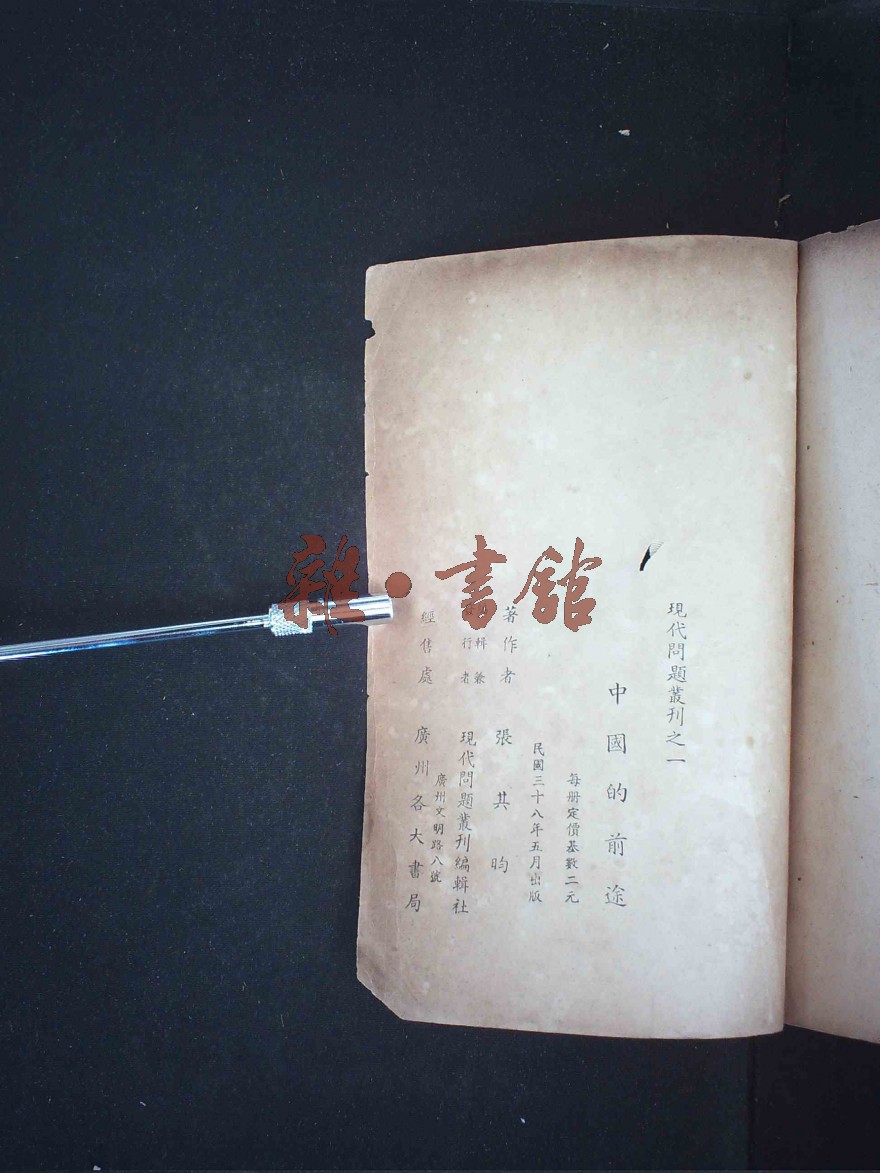 現代問題叢刊之一
中國的前途
每册定價基數二元
民國三十八年五月出版
著作者 張其昀
輯兼行者 現代問題叢刊編輯社
廣州文明路八號
經售處 廣州各大書局
雜·書館